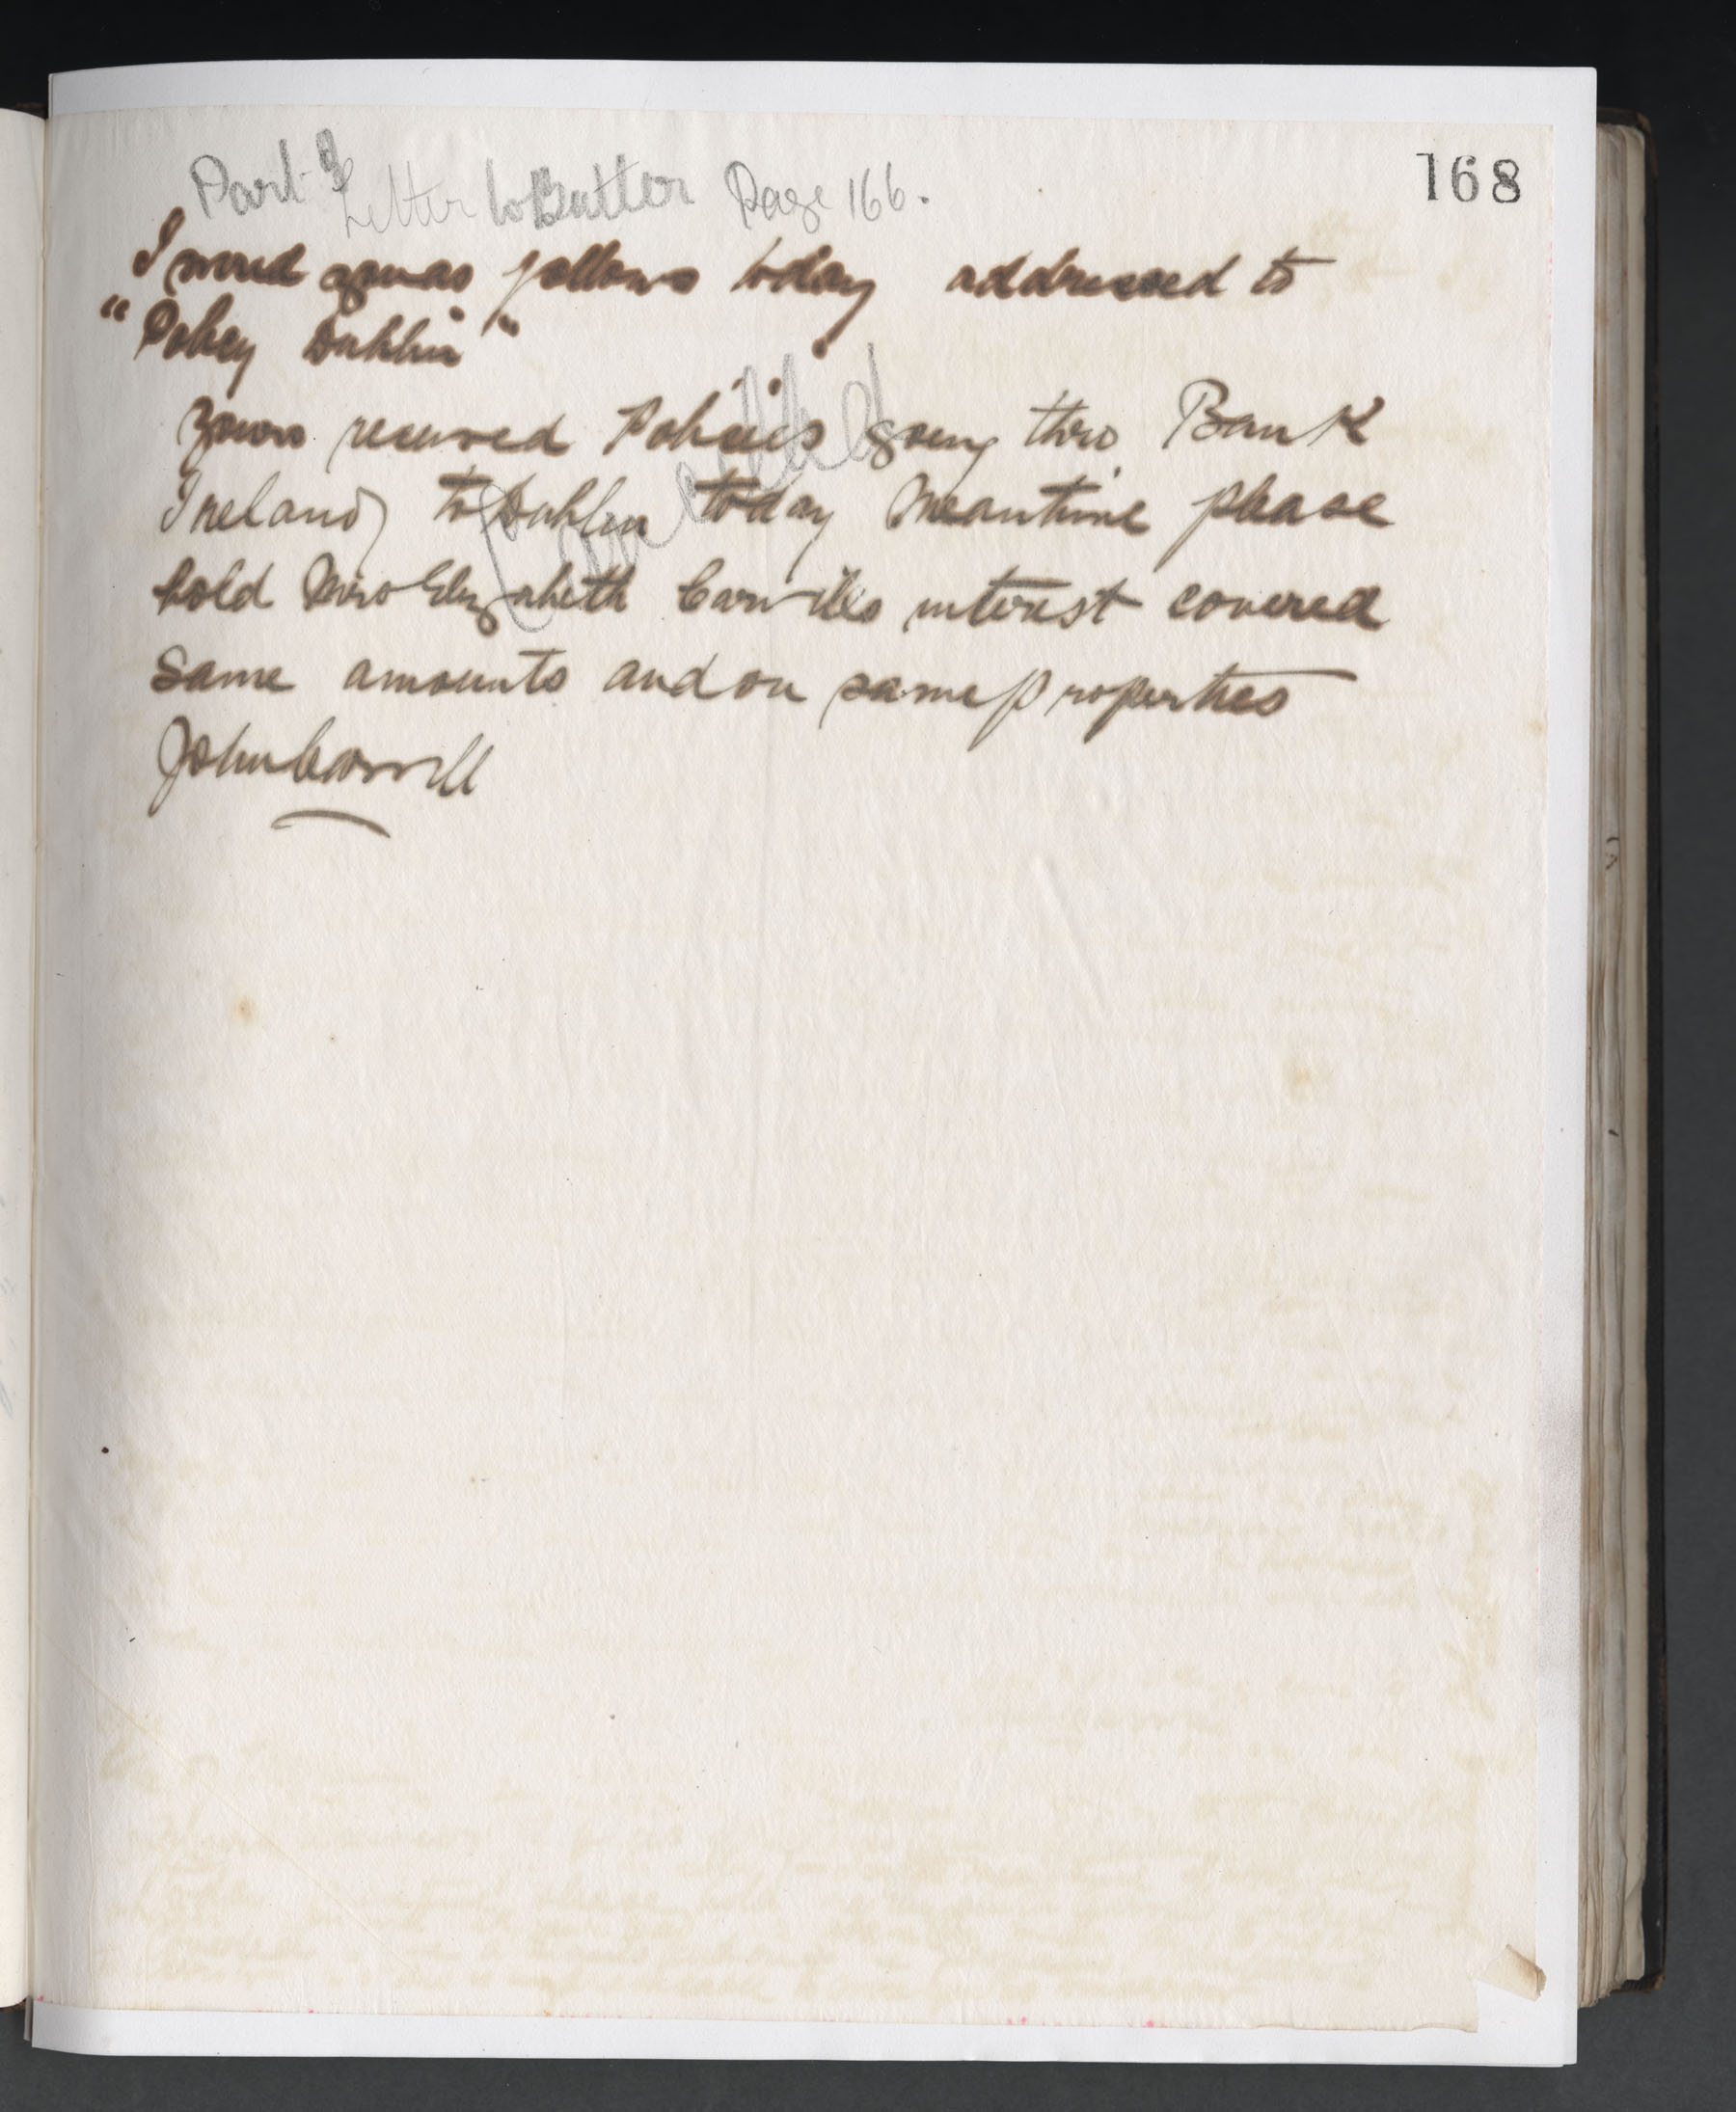 168
Part of
Letter to Butter Page 166.
I wired you as follows today addressed to
"Policy Dublin"
Yours received Policies going thro Bank
Ireland to Dublin today Meantime please
hold Mrs Elizabeth Carvills interest covered
same amounts and on same properties
John Carvill